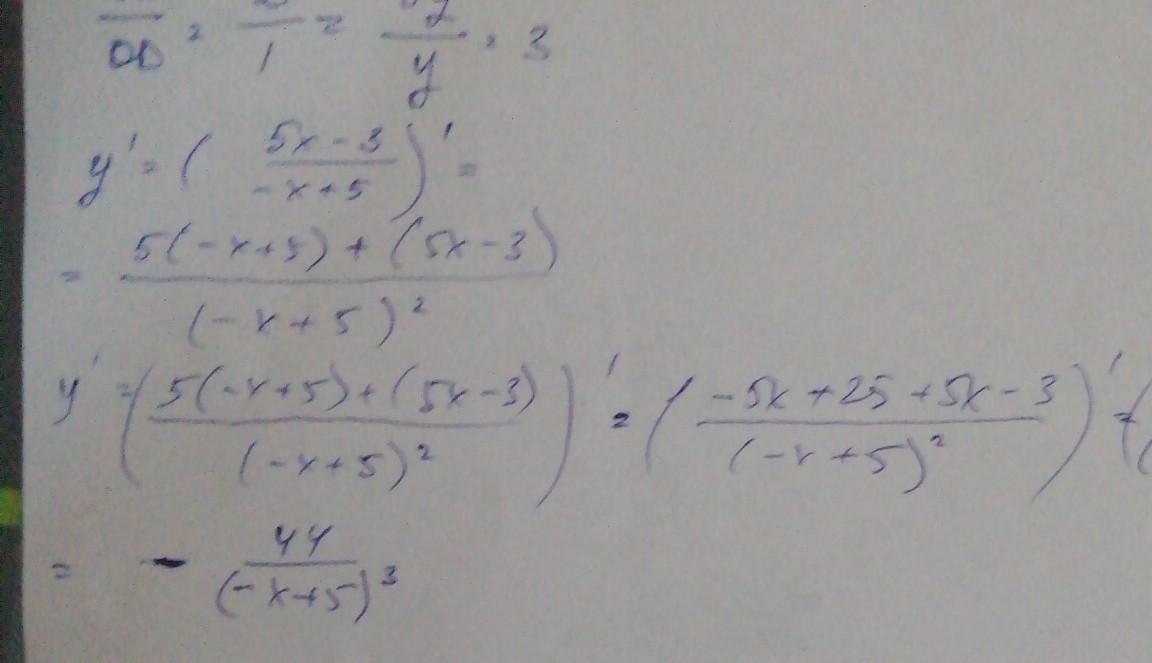 OD = 1 = y = 3
y' = ( 5x - 3 / -x + 5 )' =
= 5(-x+5) + (5x-3) / (-x+5)²
y' = ( 5(-x+5) + (5x-3) / (-x+5)² )' = ( -5x + 25 + 5x - 3 / (-x+5)² )' = (
= - 44 / (-x+5)³